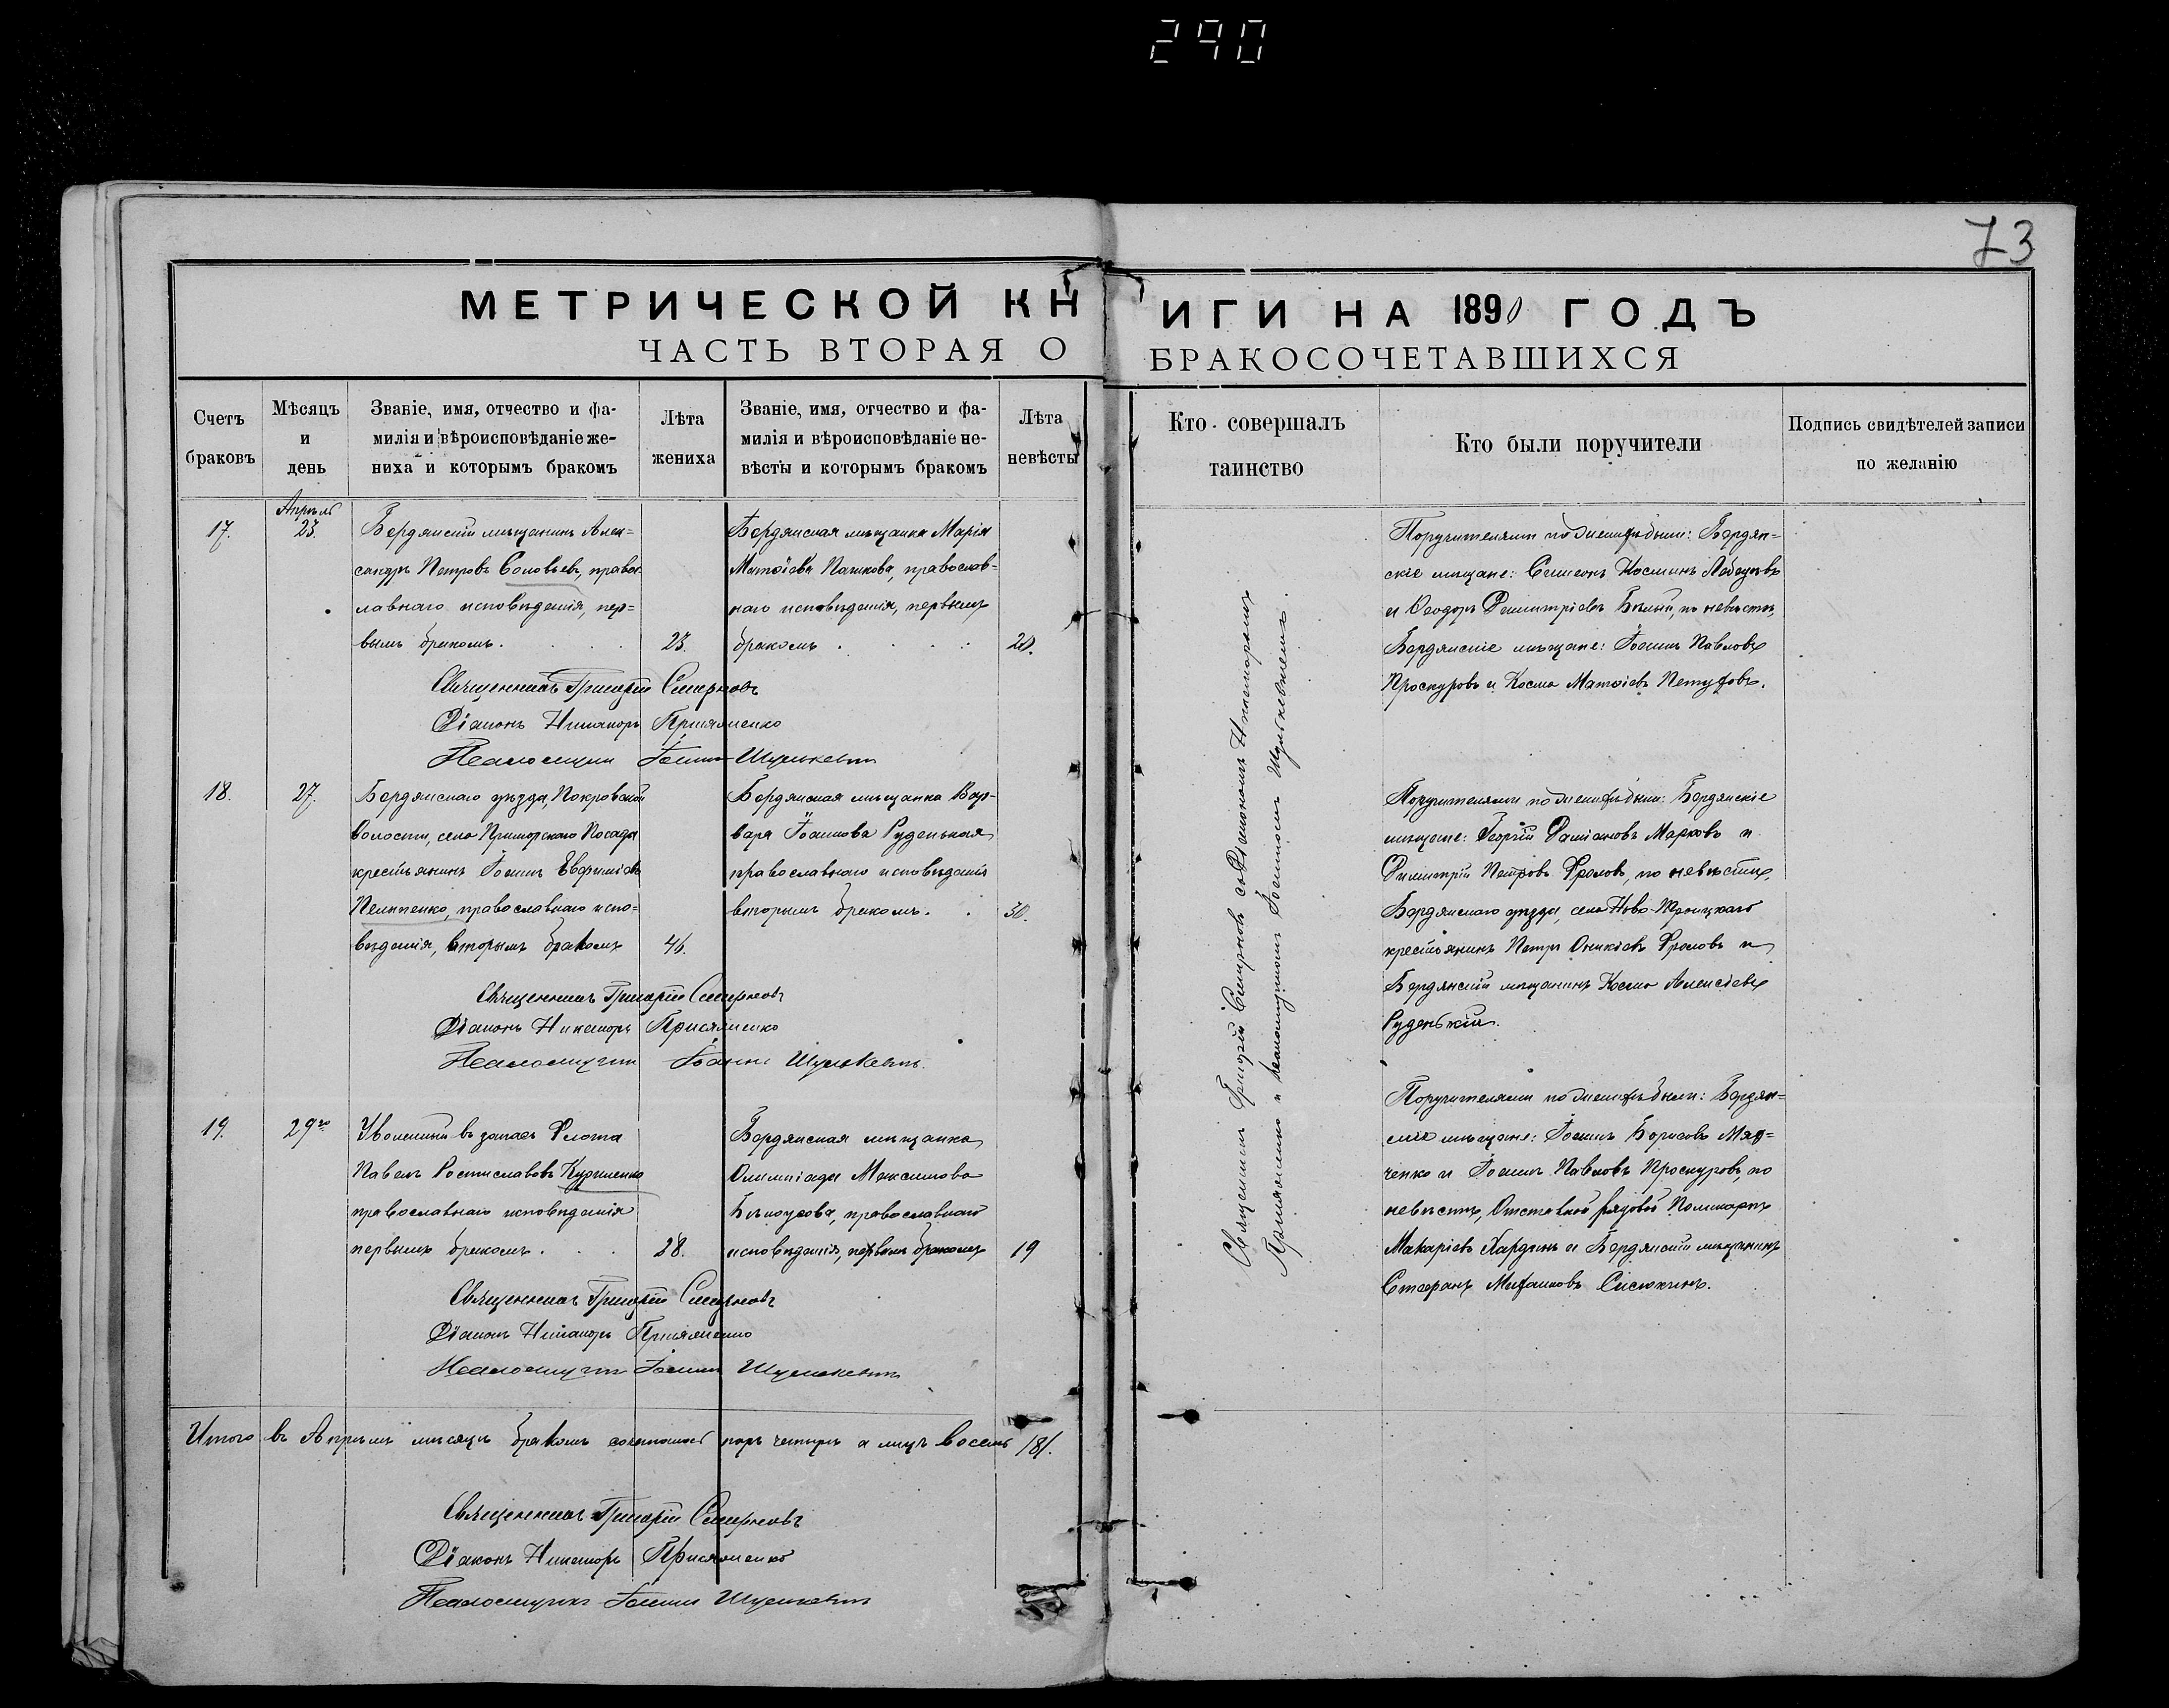 290
73
МЕТРИЧЕСКОЙ КНИГИ НА 1890 ГОДЪ
ЧАСТЬ ВТОРАЯ О БРАКОСОЧЕТАВШИХСЯ
Счетъ
браковъ
Мѣсяцъ
и
день
Званіе, имя, отчество и фа-
милія и вѣроисповѣданіе же-
ниха и которымъ бракомъ
Лѣта
жениха
Званіе, имя, отчество и фа-
милія и вѣроисповѣданіе не-
вѣсты и которымъ бракомъ
Лѣта
невѣсты
Кто совершалъ
таинство
Кто были поручители
Подпись свидѣтелей записи
по желанію
17.
Апрѣль
23.
Бердянскій мѣщанинъ Алек-
сандръ Петровъ Соловьевъ, правос-
лавнаго исповѣданія, пер-
вымъ бракомъ.
23.
Бердянская мѣщанка Марія
Матѳіева Пашкова, православ-
наго исповѣданія, первымъ
бракомъ
20.
Священникъ Григорій Смирновъ
Діаконъ Никаноръ Присяженко
Псаломщикъ Іоаннъ Шулькевичъ
18.
27.
Бердянскаго уѣзда, Покровской
волости, села Приморскаго Посада
крестьянинъ Іоаннъ Евфиміевъ
Пелипенко, православнаго испо-
вѣданія, вторымъ бракомъ
46.
Бердянская мѣщанка Вар-
вара Іоаннова Руденькая
православнаго исповѣданія
вторымъ бракомъ.
30.
Священникъ Григорій Смирновъ
Діаконъ Никаноръ Присяженко
Псаломщикъ Іоаннъ Шулькевичъ.
19.
29го
Уволенный въ запасъ Флота
Павелъ Ростиславовъ Куриленко
православнаго исповѣданія
первымъ бракомъ.
28.
Бердянская мѣщанка
Олимпіада Максимова
Бѣлоусова, православнаго
исповѣданія, первымъ бракомъ
19
Священникъ Григорій Смирновъ
Діаконъ Никаноръ Присяженко
Псаломщикъ Іоаннъ Шулькевичъ
Итого въ Апрѣлѣ мѣсяцѣ бракомъ сочеталось паръ четыре а лицъ восемь /8/.
Священникъ Григорій Смирновъ
Діаконъ Никаноръ Присяженко
Псаломщикъ Іоаннъ Шулькевичъ
Священникъ Григорій Смирновъ съ Діакономъ Никаноромъ
Присяженко и псаломщикомъ Іоанномъ Шулькевичемъ.
Поручителями по женихѣ были: Бердян-
скіе мѣщане: Симеонъ Косминъ
и Ѳеодоръ Димитріевъ Бѣлый, по невѣстѣ,
Бердянскіе мѣщане: Іоаннъ Павловъ
Проскуровъ и Косма Матѳіевъ Петуховъ.
Поручителями по женихѣ были: Бердянскіе
мѣщане: Георгій Даміановъ Марковъ и
Димитрій Петровъ Фроловъ, по невѣстѣ,
Бердянскаго уѣзда, села Ново-Троицкаго
крестьянинъ Петръ Оникіевъ Фроловъ и
Бердянскій мѣщанинъ Косма Алексіевъ
Руденькій.
Поручителями по женихѣ были: Бердян-
скіе мѣщане: Іоаннъ Борисовъ
и Іоаннъ Павловъ Проскуровъ, по
невѣстѣ, Отставной рядовой Поликарпъ
Макаріевъ Хардинъ и Бердянскій мѣщанинъ
Стефанъ Михаиловъ Сисюкинъ.